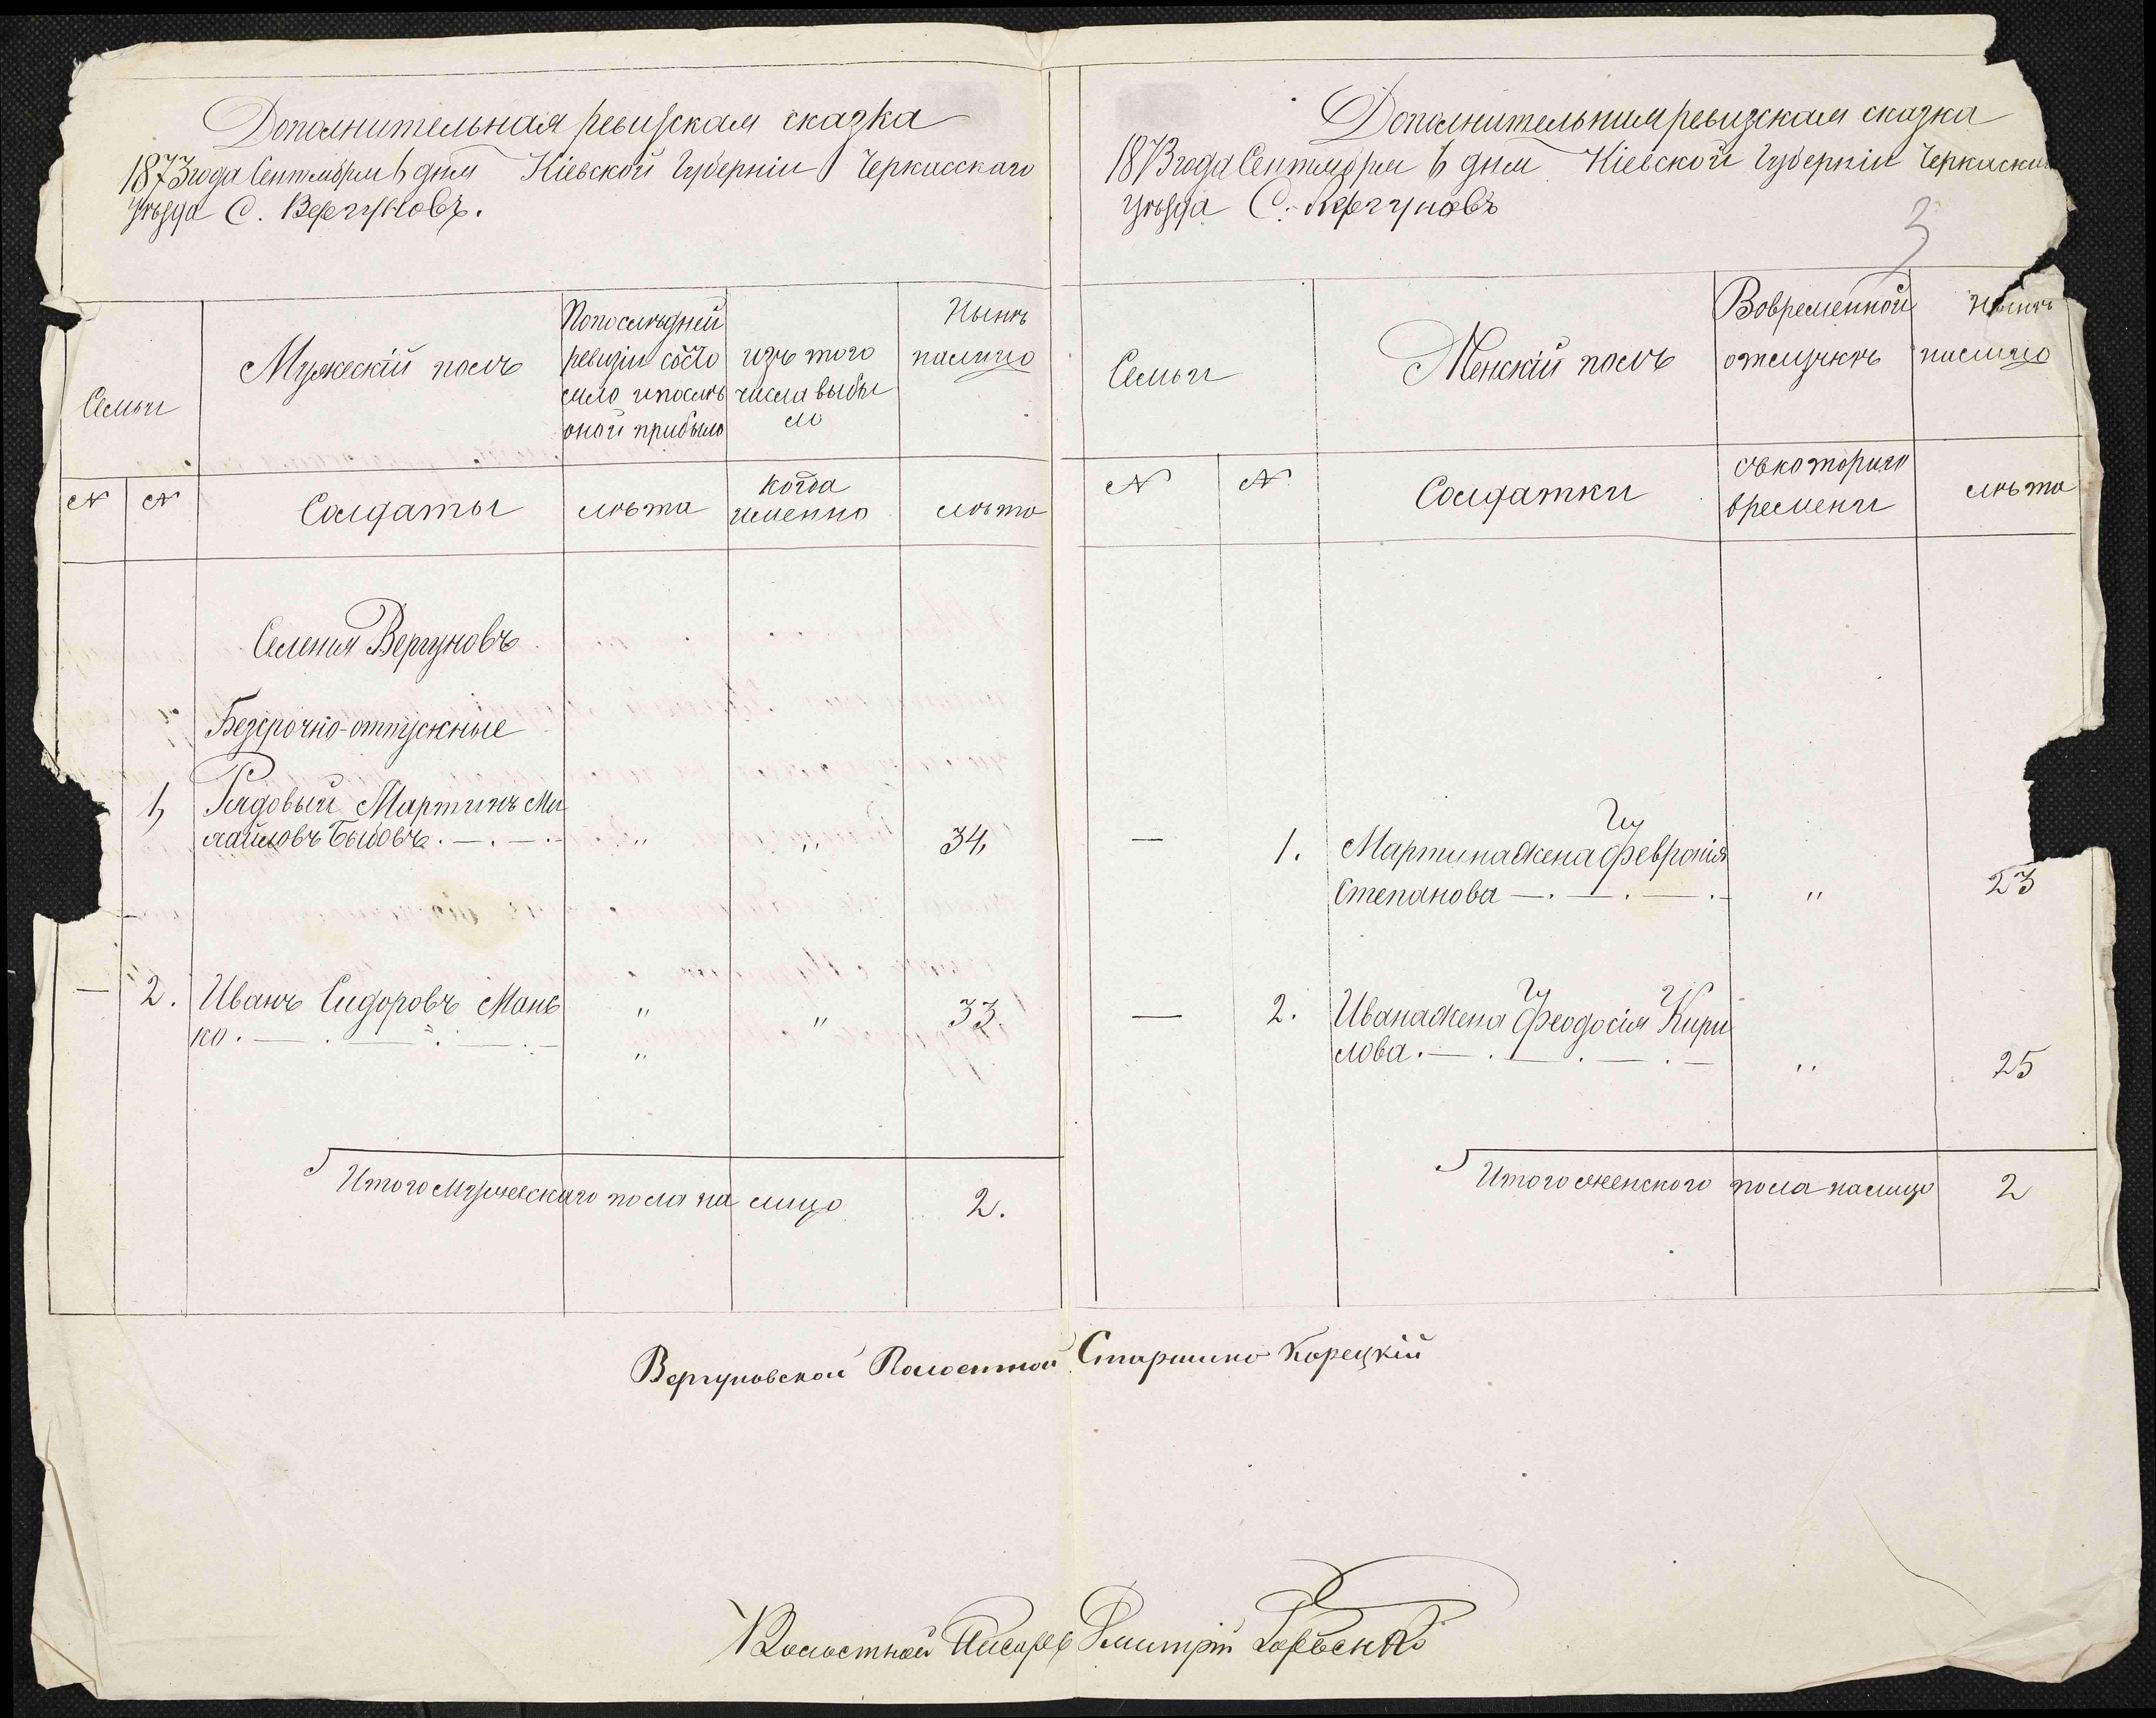 Дополнительная ревизская сказка
1873 года Сентября 6 дня Кіевской Губерніи Черкасскаго
уѣзда С. Вергуновъ.
Семьи
Мужескій полъ
По послѣдней
ревизіи состо
яло и послѣ
оной прибыло
изъ того
числа выбы
ло
Нынѣ
налицо
N
N
Солдаты
лѣта
когда
именно
лѣта
Селенія Вергуновъ
Безсрочно-отпускные
1,
Рядовый Мартинъ Ми
хайловъ . — . — . -
"
"
34,
—
2.
Иванъ Сидоровъ Мань
ко . — . — . — . —
"
"
"
33
Итого Мужескаго пола на лицо
2.
Дополнительная ревизская сказка
1873 года Сентября 6 дня Кіевской Губерніи Черкаска
уѣзда С. Вергуновъ
3
Семьи
Женскій полъ
Во временной
отлучкѣ
Нынѣ
налицо
N
N
Солдатки
съ котораго
времени
лѣта
—
1.
Мартина жена Февронія
Степанова — . — . — . -
"
23
—
2.
Ивана жена Феодосія Кири
лова . — . — . — . —
"
25
Итого женского пола налицо
2
Вергуновской Волостной Старшина Корецкій
Волостной Писарь Дмитрій